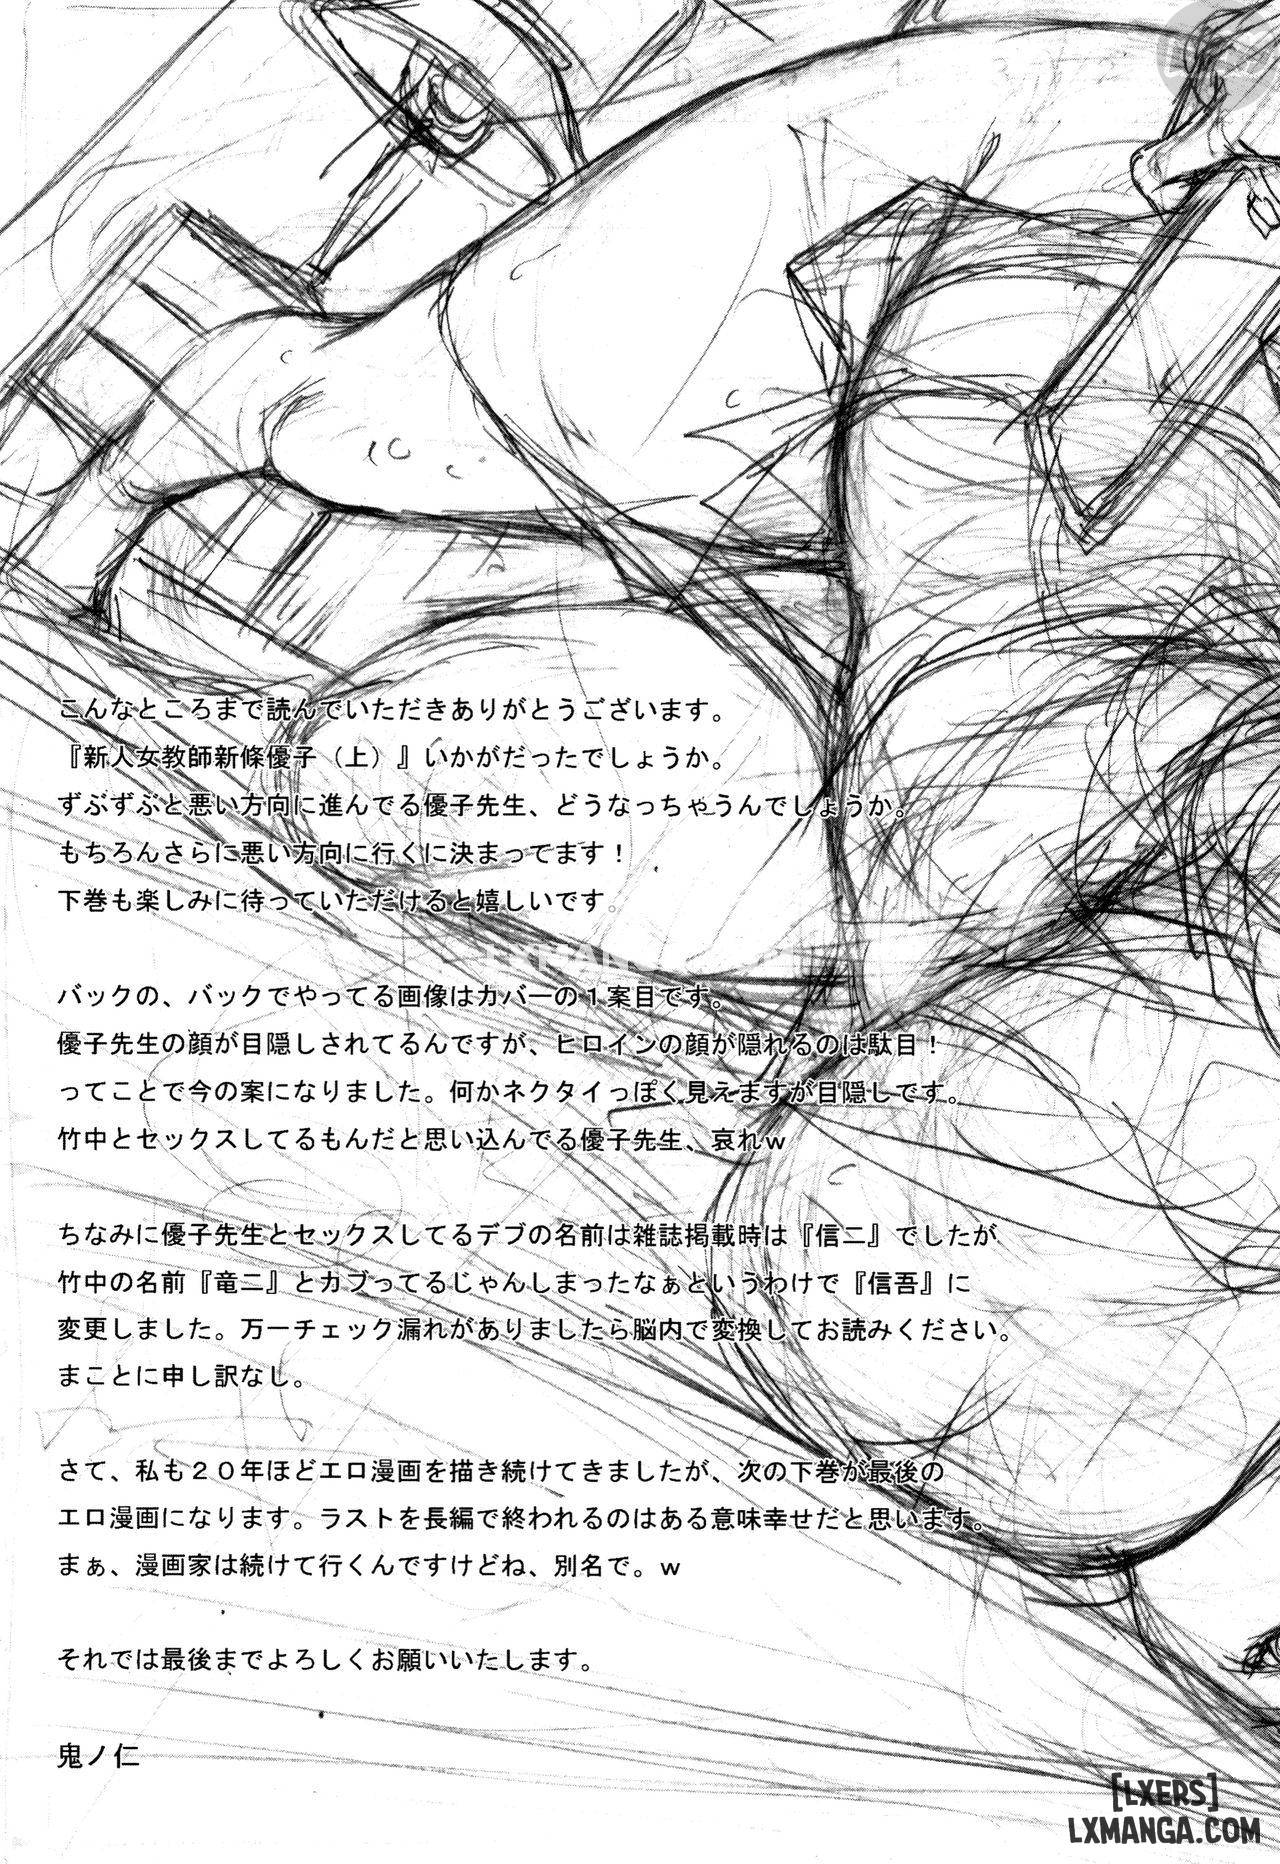 こんなところまで読んでいただきありがとうございます。
『新人女教師新條優子（上）』いかがだったでしょうか。
ずぶずぶと悪い方向に進んでる優子先生、どうなっちゃうんでしょうか。
もちろんさらに悪い方向に行くに決まってます！
下巻も楽しみに待っていただけると嬉しいです。
バックの、バックでやってる画像はカバーの１案目です。
優子先生の顔が目隠しされてるんですが、ヒロインの顔が隠れるのは駄目！
ってことで今の案になりました。何かネクタイっぽく見えますが目隠しです。
竹中とセックスしてるもんだと思い込んでる優子先生、哀れｗ
ちなみに優子先生とセックスしてるデブの名前は雑誌掲載時は『信二』でしたが
竹中の名前『竜二』とカブってるじゃんしまったなぁというわけで『信吾』に
変更しました。万一チェック漏れがありましたら脳内で変換してお読みください。
まことに申し訳なし。
さて、私も２０年ほどエロ漫画を描き続けてきましたが、次の下巻が最後の
エロ漫画になります。ラストを長編で終われるのはある意味幸せだと思います。
まぁ、漫画家は続けて行くんですけどね、別名で。ｗ
それでは最後までよろしくお願いいたします。
鬼ノ仁
[LXERS]
LXMANGA.COM